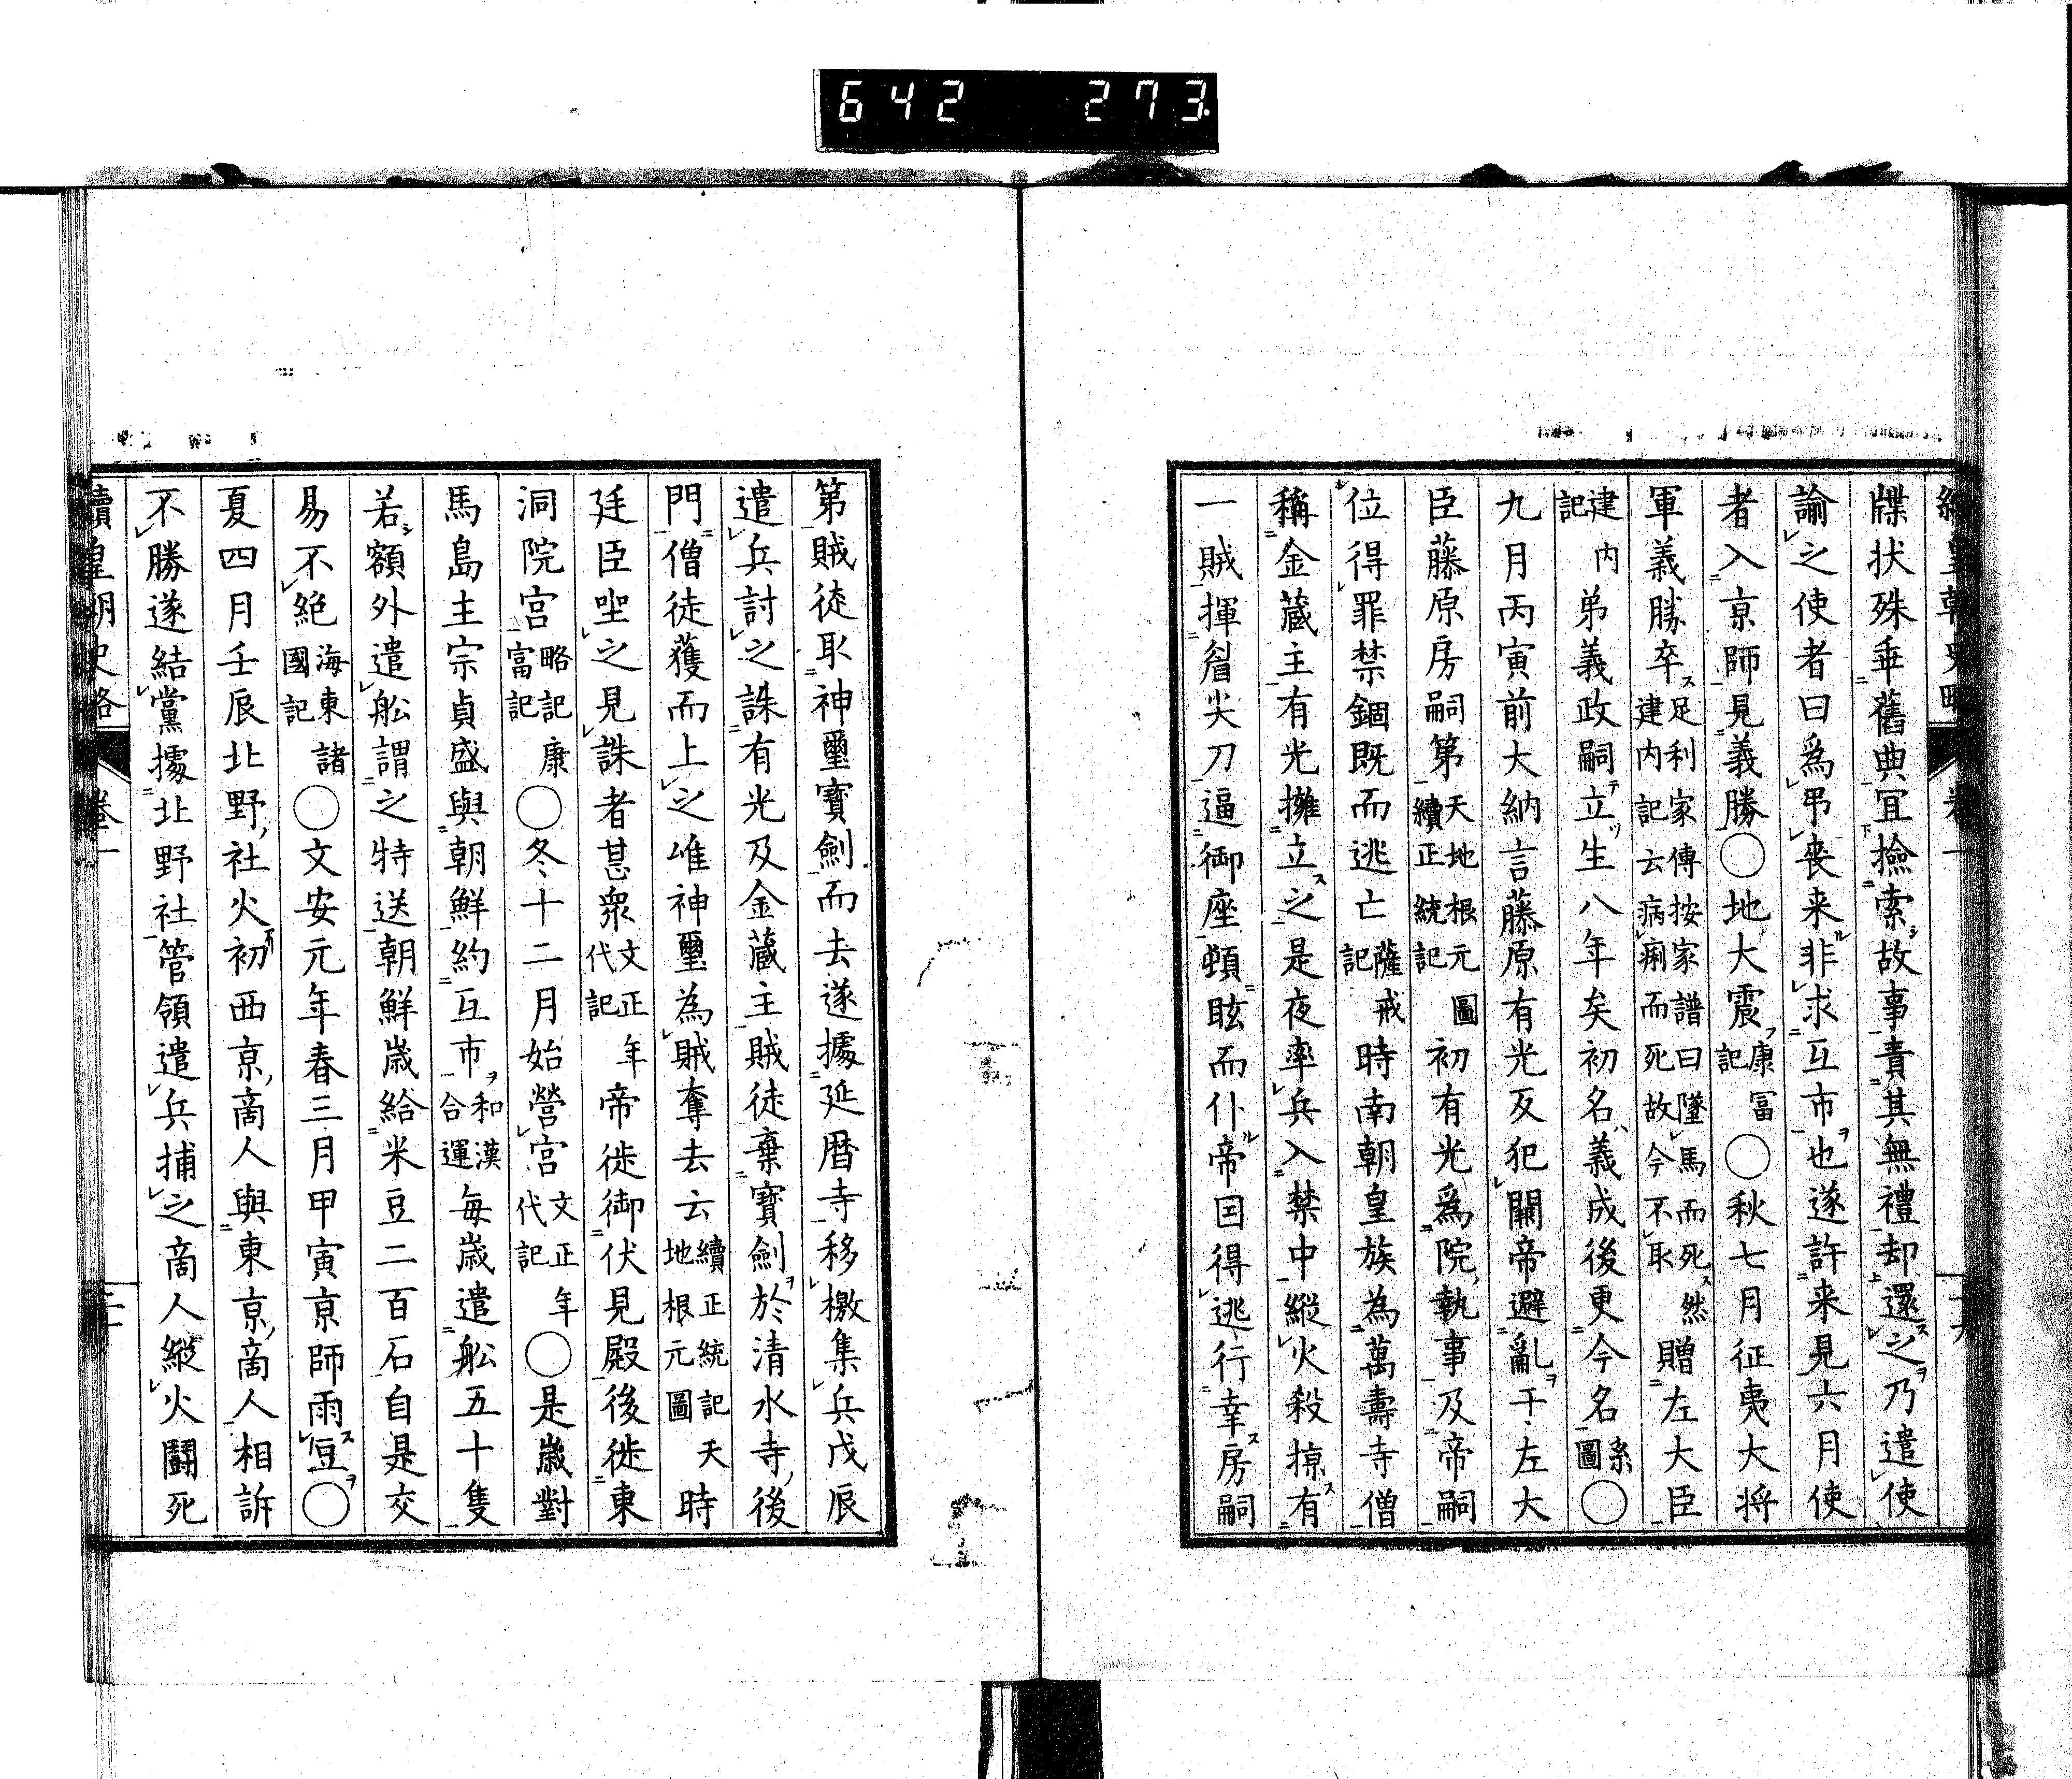 642 273
續皇朝史略 卷一
牒状殊乖舊典宜撿索故事責其無禮却還之乃遣使
諭之使者曰爲弔喪来非求互市也遂許来見六月使
者入京師見義勝〇地大震康冨記〇秋七月征夷大将
軍義勝卒足利家傳按家譜曰墜馬而死然建内記云病痢而死故今不取贈左大臣
建内記弟義政嗣立生八年矣初名義成後更今名系圖〇
九月丙寅前大納言藤原有光反犯闕帝避亂于左大
臣藤原房嗣第天地根元圖續正統記初有光爲院執事及帝嗣
位得罪禁錮既而逃亡薩戒記時南朝皇族為萬壽寺僧
稱金藏主有光擁立之是夜率兵入禁中縱火殺掠有
一賊揮眉尖刀逼御座頓眩而仆帝因得逃行幸房嗣
第賊徒取神璽寶劍而去遂據延暦寺移檄集兵戊辰
遣兵討之誅有光及金藏主賊徒棄寶劍於清水寺後
門僧徒獲而上之唯神璽為賊奪去云續正統記天地根元圖時
廷臣坐之見誅者甚衆文正年代記帝徙御伏見殿後徙東
洞院宮略記康富記〇冬十二月始營宮文正年代記〇是歳對
馬島主宗貞盛與朝鮮約互市和漢合運毎歳遣舩五十隻
若額外遣舩謂之特送朝鮮歳給米豆二百石自是交
易不絶海東諸國記〇文安元年春三月甲寅京師雨豆〇
夏四月壬辰北野社火初西京啇人與東京啇人相訴
不勝遂結黨據北野社管領遣兵捕之啇人縱火鬪死
續皇朝史略 卷一